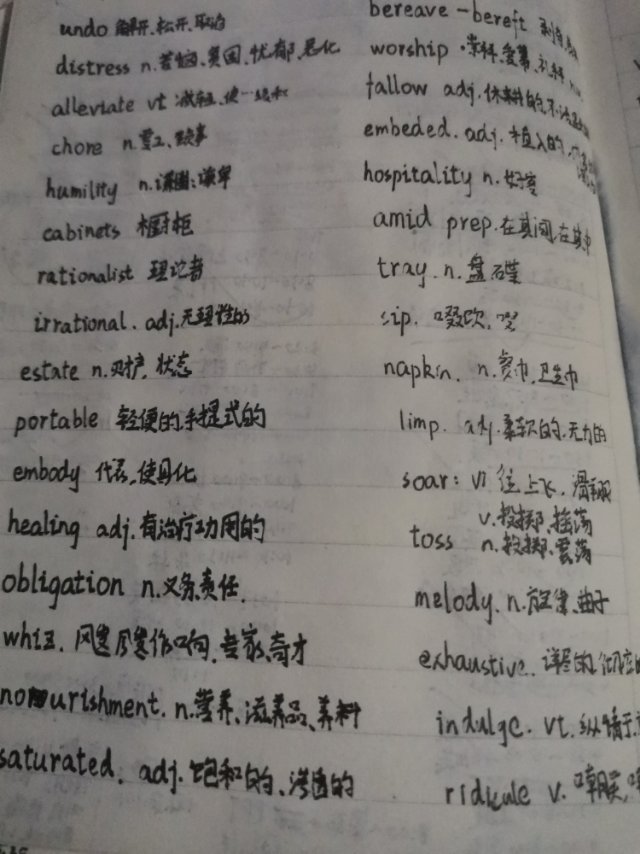 undo 解开、松开、取消
distress n.苦恼、贫困、忧郁、恶化
alleviate vt 减轻、使缓和
chore n 零工、琐事
humility n.谦逊;谦卑
cabinets 橱柜
rationalist 理论者
irrational. adj.无理性的
estate n.财产、状态
portable 轻便的、手提式的
embody 代表、使具化
healing adj.有治疗功用的
obligation n.义务.责任.
whiz. 飕飕作响、专家、奇才
nourishment. n.营养、滋养品、养料
saturated. adj.饱和的、渗透的
bereave - bereft
worship .崇拜、爱慕、礼拜
fallow adj.休耕的
embeded. adj. 植入的
hospitality n. 好客
amid prep.在其间、在其中
tray. n. 盘、碟
sip. 啜饮、
napkin. n.餐巾、卫生巾
limp. adj.柔软的.无力的
soar: vi 往上飞、滑翔
v.投掷、摇荡
toss n.投掷、震荡
melody. n.旋律、曲子
exhaustive. 详尽的、彻底的
indulge. vt.纵情于
ridicule v. 嘲笑、